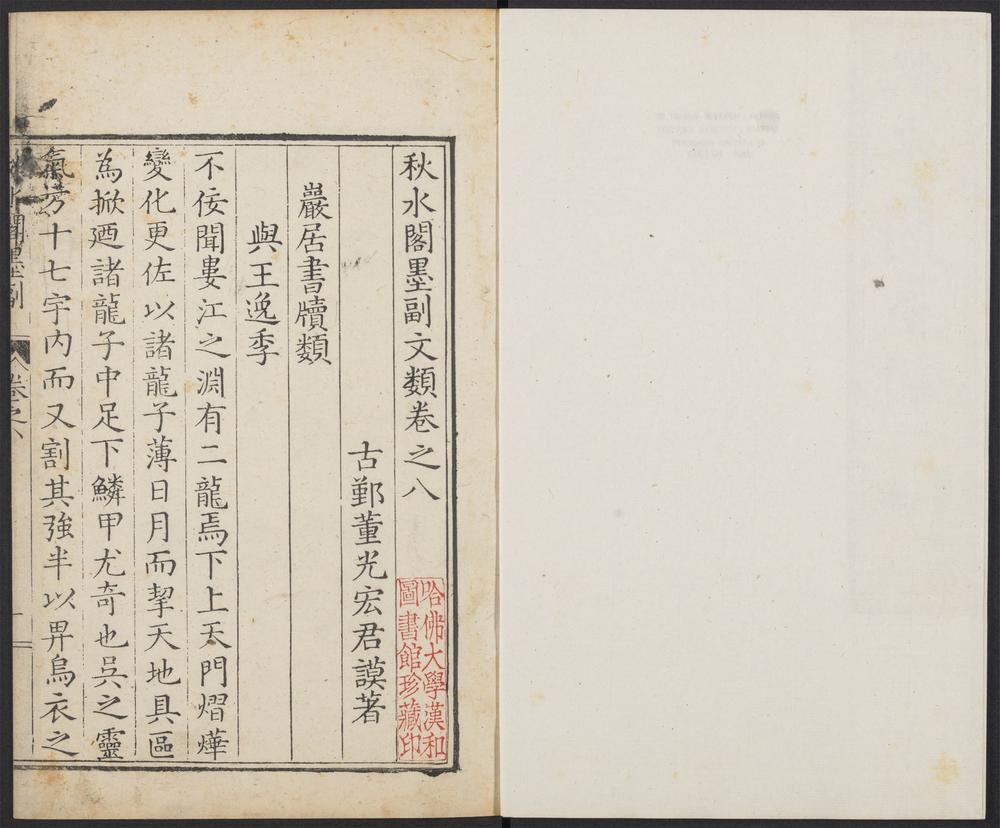 秋水閣墨副文類卷之八
古鄞董光宏君謨著
巖居書牘類
與王逸季
不佞聞婁江之淵有二龍焉下上天門熠燁
變化更佐以諸龍子薄日月而挈天地具區
為掀廼諸龍子中足下鱗甲尤奇也吳之靈
氣方十七宇内而又割其強半以畀烏衣之
水閣墨副
卷之八
哈佛大學漢和
圖書館珍藏印